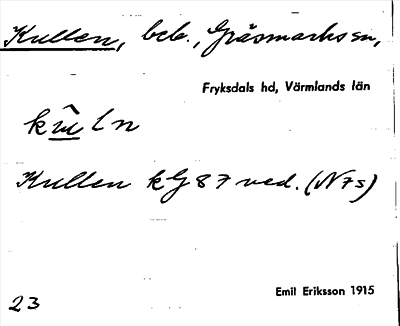 Kullen, beb., Gräsmarks sn,
Fryksdals hd, Värmlands län
Kullen kG 87 ved. (N 7 s)
Emil Eriksson 1915
23